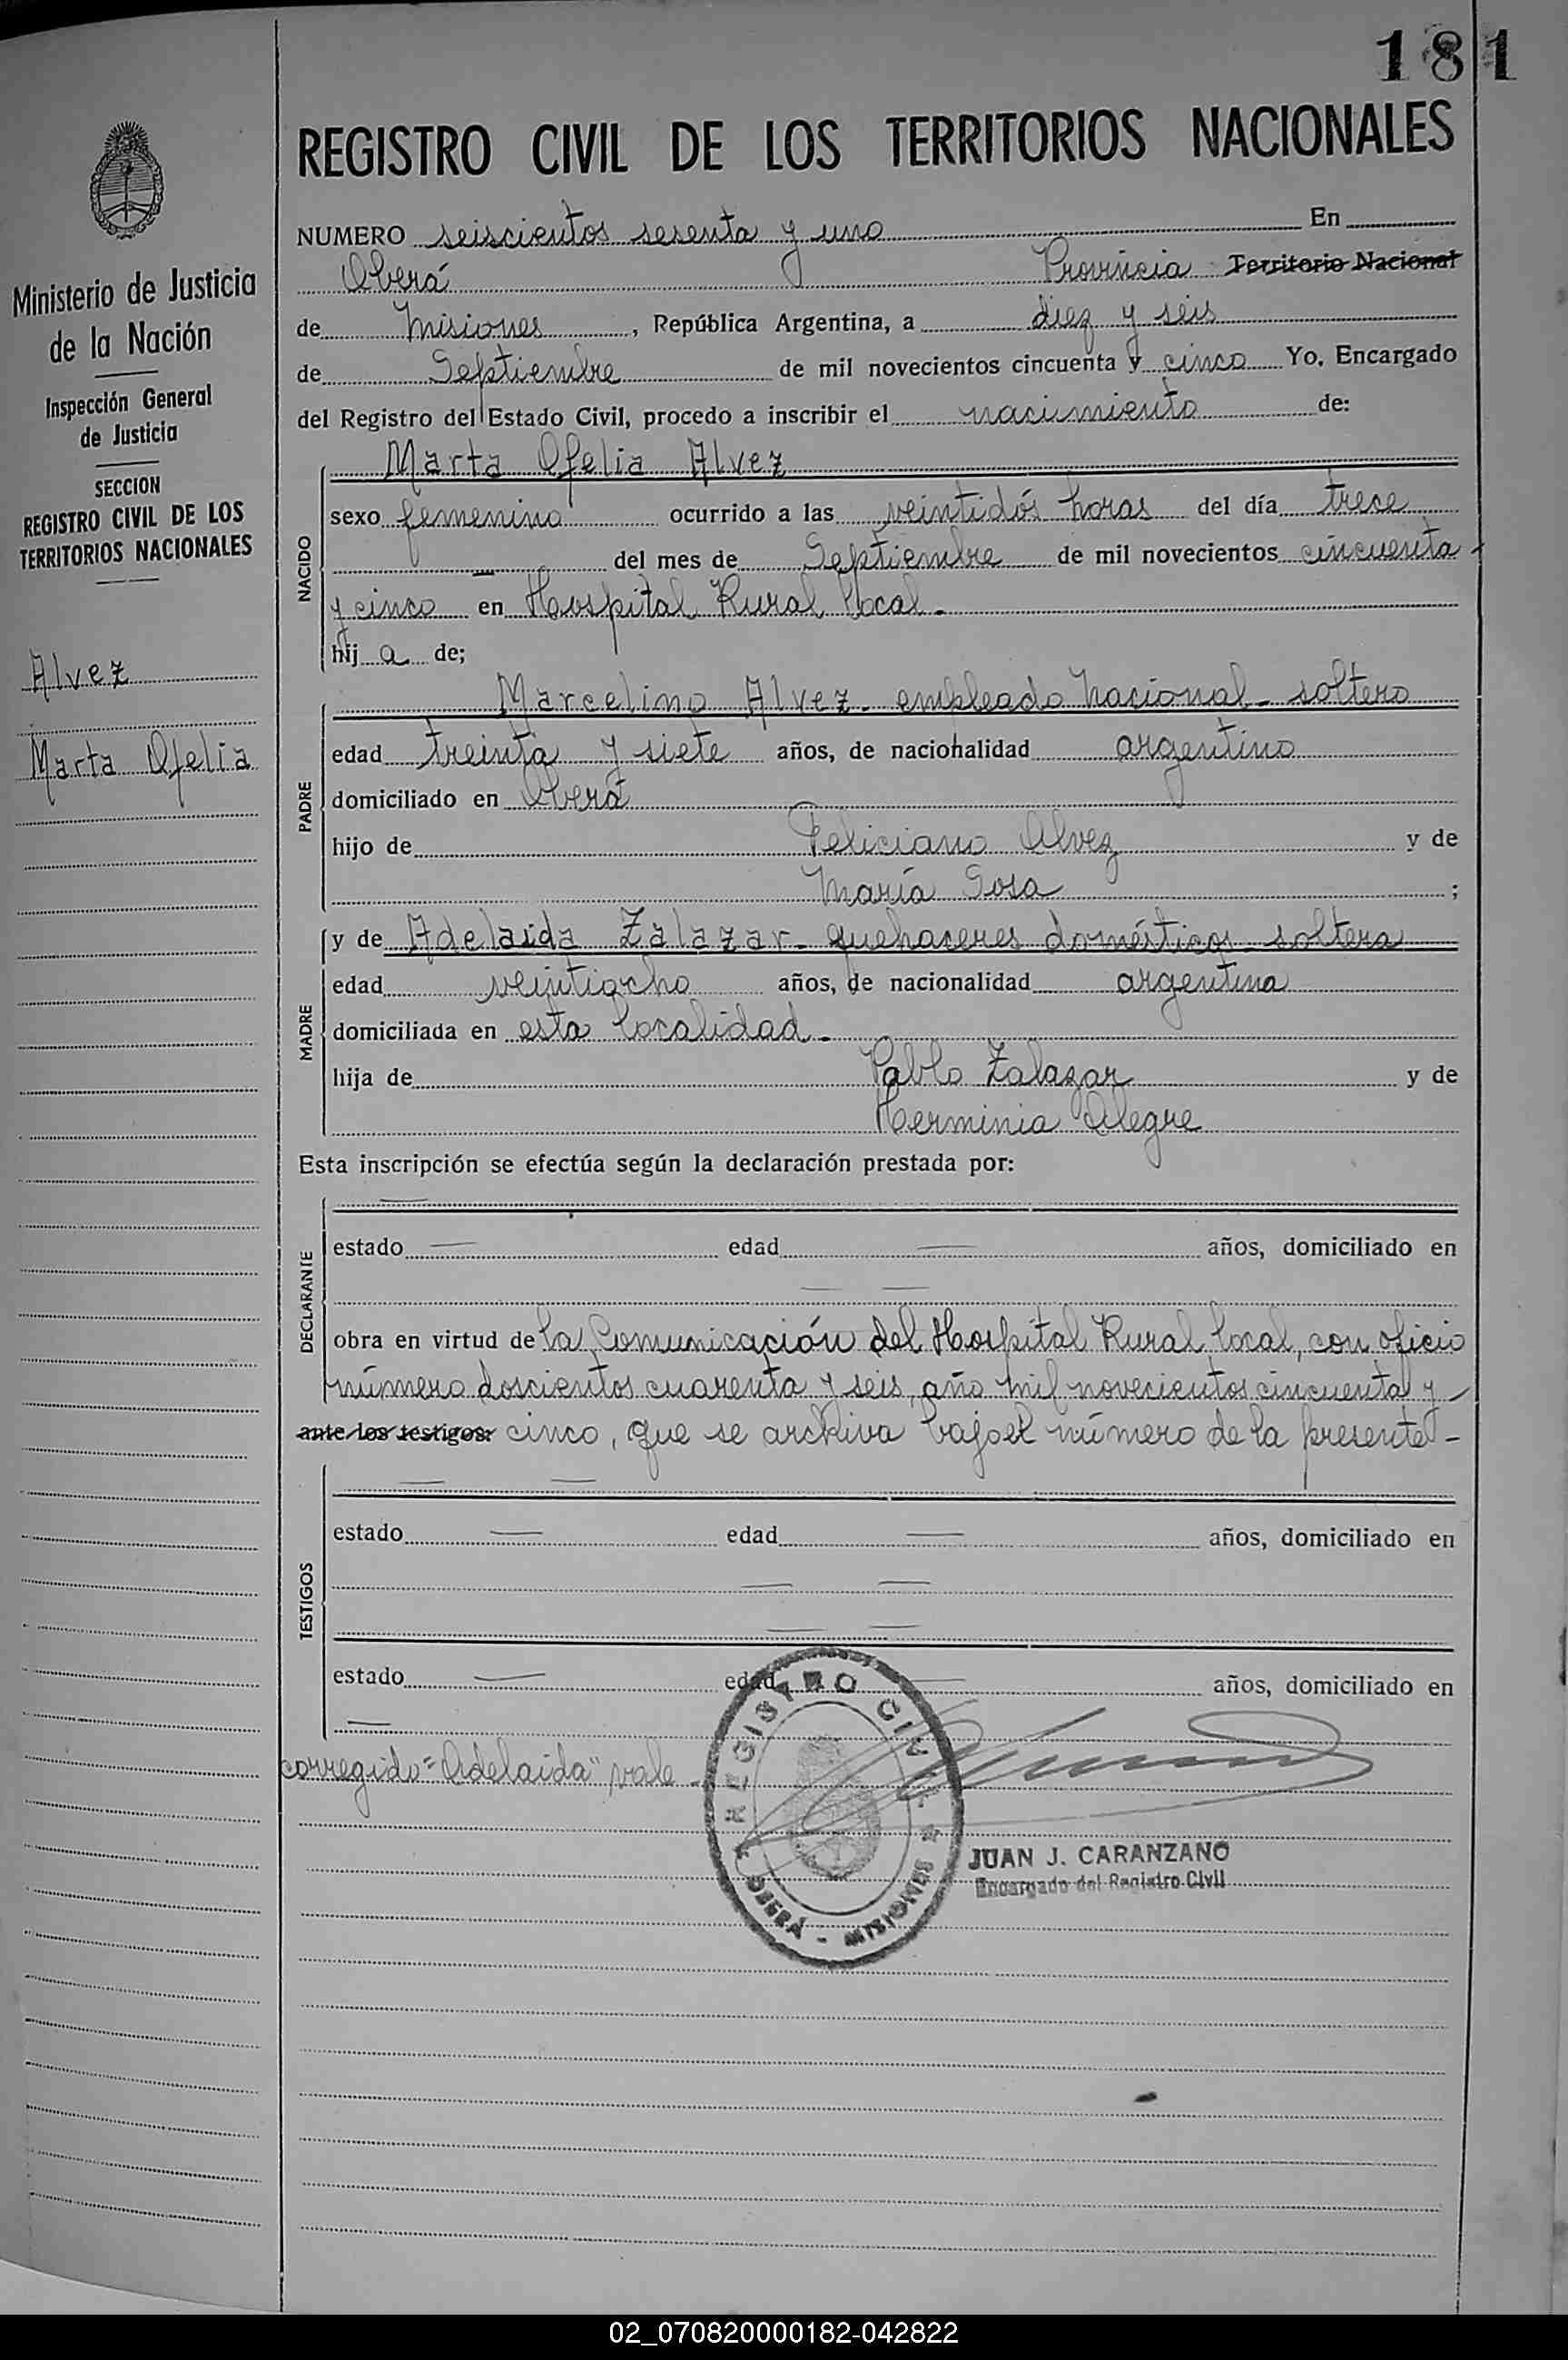 181
REGISTRO CIVIL DE LOS TERRITORIOS NACIONALES
Ministerio de Justicia
de la Nación
Inspección General
de Justicia
SECCION
REGISTRO CIVIL DE LOS
TERRITORIOS NACIONALES
Alvez
Marta Ofelia
NUMERO seiscientos sesenta y uno En
Oberá Provincia Territorio Nacional
de Misiones, República Argentina, a diez y seis
de Septiembre de mil novecientos cincuenta y cinco Yo, Encargado
del Registro del Estado Civil, procedo a inscribir el nacimiento de:
NACIDO
Marta Ofelia Alvez
sexo femenino ocurrido a las veintidós horas del día trece
del mes de Septiembre de mil novecientos cincuenta
y cinco en Hospital Rural local.
hij a de;
PADRE
Marcelino Alvez - empleado Nacional - soltero
edad treinta y siete años, de nacionalidad argentino
domiciliado en Oberá
hijo de Feliciano Alvez y de
María Sosa ;
MADRE
y de Adelaida Zalazar - quehaceres domésticos - soltera
edad veintiocho años, de nacionalidad argentina
domiciliada en esta localidad.
hija de Pablo Zalazar y de
Herminia Alegre
Esta inscripción se efectúa según la declaración prestada por:
DECLARANTE
estado edad años, domiciliado en
obra en virtud de la Comunicación del Hospital Rural local, con oficio
número doscientos cuarenta y seis, año mil novecientos cincuenta y
ante los testigos: cinco, que se archiva bajo el número de la presente -
TESTIGOS
estado edad años, domiciliado en
estado edad años, domiciliado en
corregido = "Adelaida" vale -
REGISTRO CIVIL
OBERÁ - MISIONES
JUAN J. CARANZANO
Encargado del Registro Civil
02_070820000182-042822